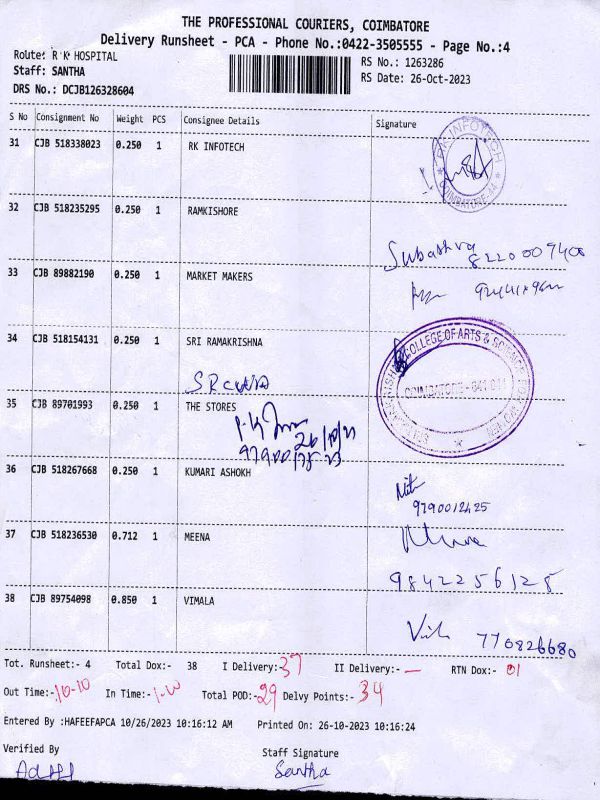 THE PROFESSIONAL COURIERS, COIMBATORE
Delivery Runsheet - PCA - Phone No.:0422-3505555 - Page No.:4
Route: R K HOSPITAL
RS No.: 1263286
Staff: SANTHA
RS Date: 26-Oct-2023
DRS No.: DCJB126328604
S No Consignment No Weight PCS Consignee Details Signature
31 CJB 518338023 0.250 1 RK INFOTECH
RK INFOTECH
COIMBATORE-44
32 CJB 518235295 0.250 1 RAMKISHORE
Subashra
8220009408
33 CJB 89882190 0.250 1 MARKET MAKERS
34 CJB 518154131 0.250 1 SRI RAMAKRISHNA
COLLEGE OF ARTS & SCIENCE
COIMBATORE - 641 044
35 CJB 89701993 0.250 1 THE STORES
26/10/23
36 CJB 518267668 0.250 1 KUMARI ASHOKH
9790012425
37 CJB 518236530 0.712 1 MEENA
9842256128
38 CJB 89754098 0.850 1 VIMALA
770826680
Tot. Runsheet:- 4 Total Dox:- 38 I Delivery:- 37 II Delivery:- — RTN Dox:- 01
Out Time:- 10-10 In Time:- 1-00 Total POD:- 29 Delvy Points:- 34
Entered By :HAFEEFAPCA 10/26/2023 10:16:12 AM Printed On: 26-10-2023 10:16:24
Verified By Staff Signature
Santha